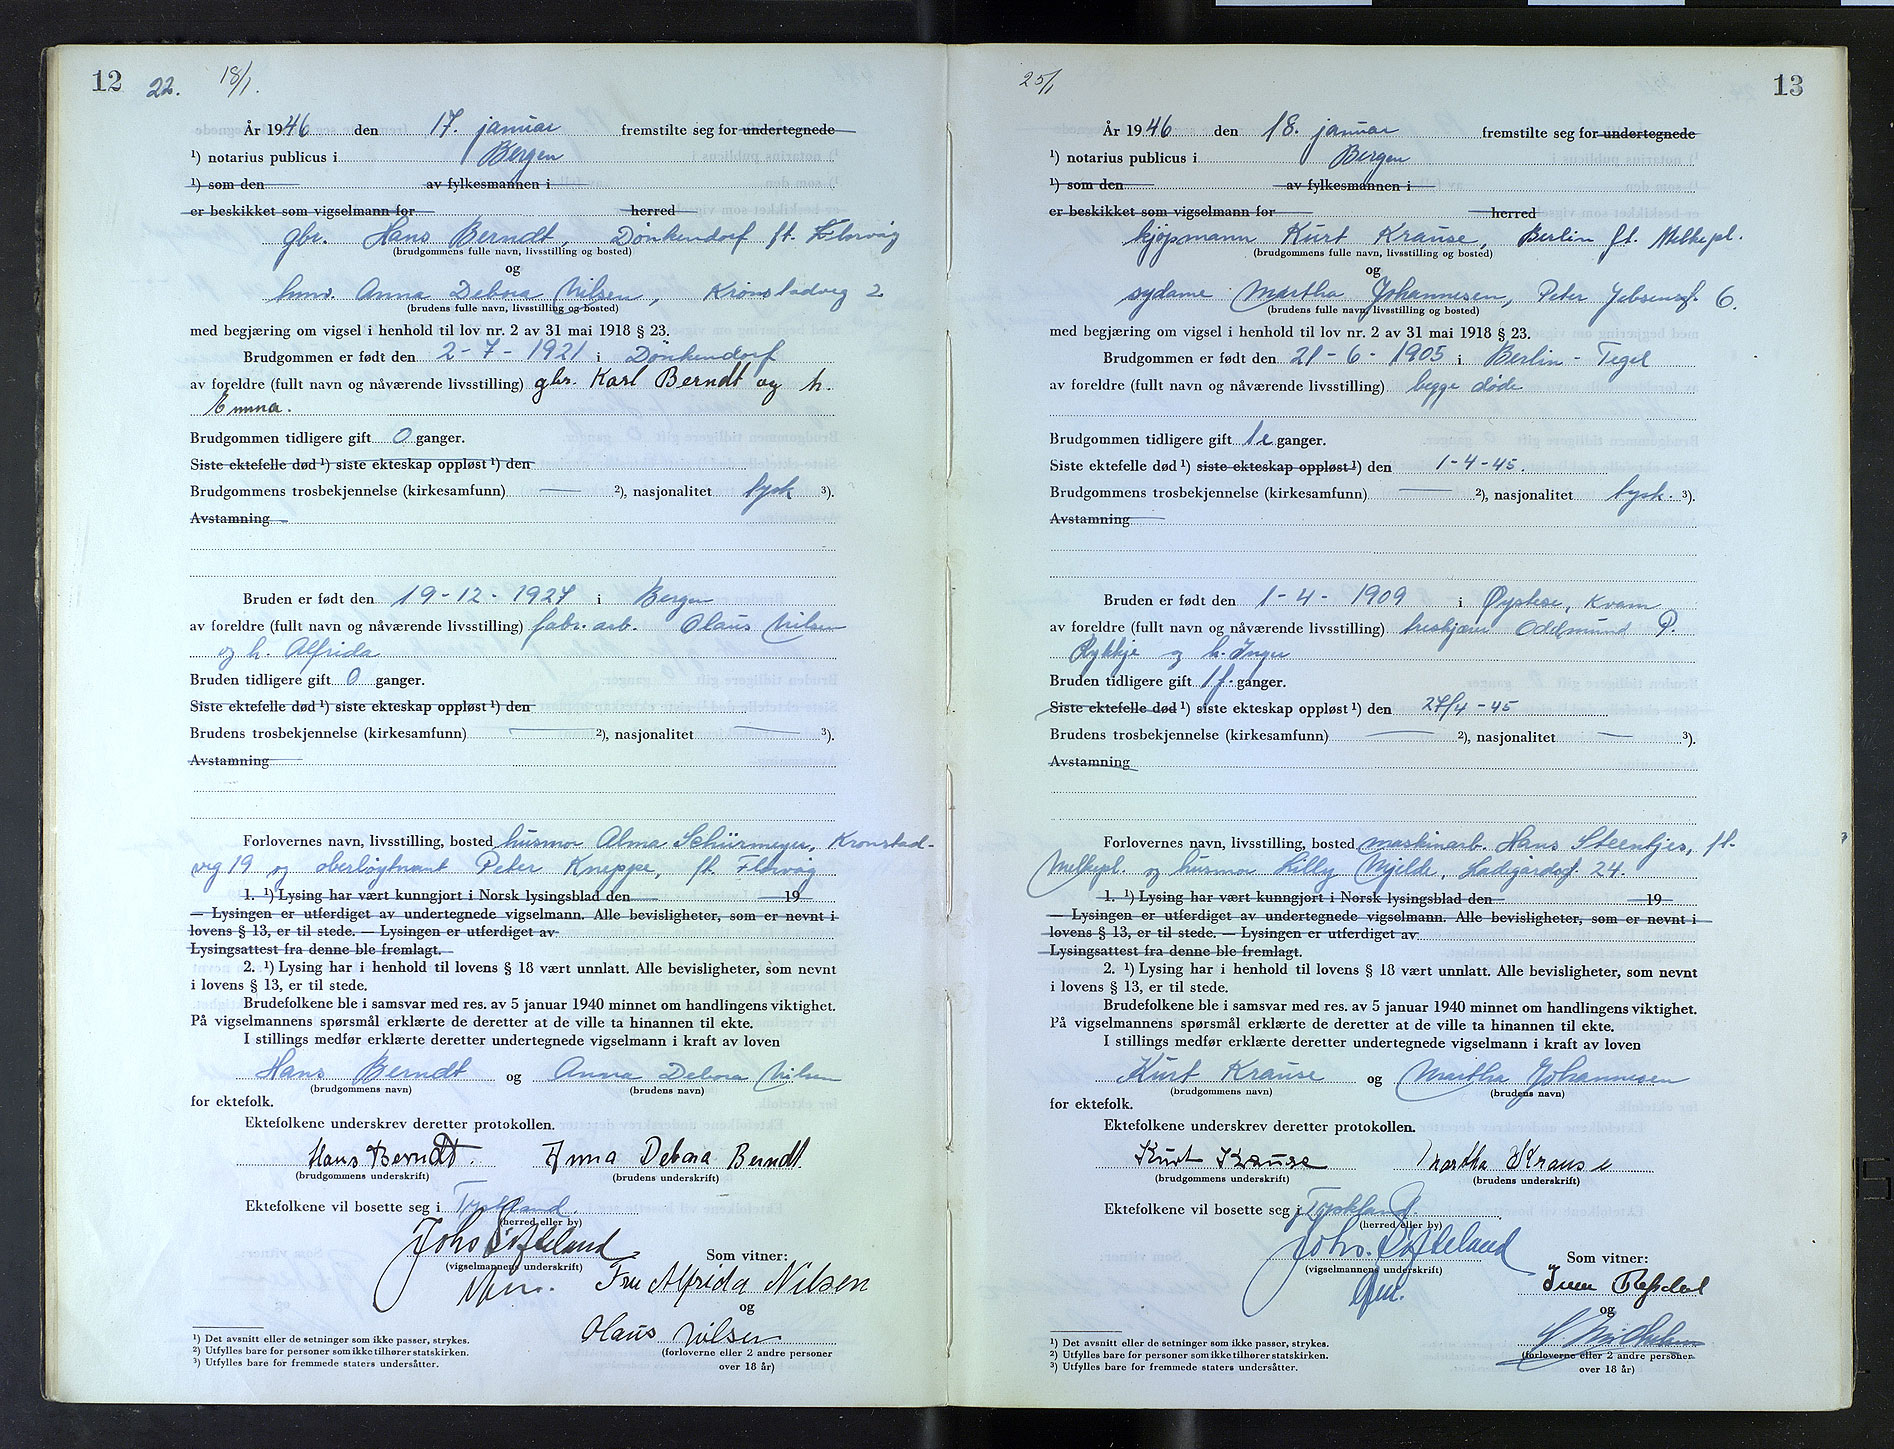 12 22. 18/1.
År 1946 den 17. januar fremstilte seg for undertegnede
¹) notarius publicus i Bergen
¹) som den av fylkesmannen i
er beskikket som vigselmann for herred
gbr. Hans Berndt, Dönkendorf ft. Florvåg
(brudgommens fulle navn, livsstilling og bosted)
og
Anna Debora Nilsen, Kronstadveg 2
(brudens fulle navn, livsstilling og bosted)
med begjæring om vigsel i henhold til lov nr. 2 av 31 mai 1918 § 23.
Brudgommen er født den 2-7-1921 i Dönkendorf
av foreldre (fullt navn og nåværende livsstilling) gbr. Karl Berndt og h.
Emma.
Brudgommen tidligere gift 0 ganger.
Siste ektefelle død ¹) siste ekteskap oppløst ¹) den
Brudgommens trosbekjennelse (kirkesamfunn) — ²), nasjonalitet tysk ³).
Avstamning
Bruden er født den 19-12-1927 i Bergen
av foreldre (fullt navn og nåværende livsstilling) fabr. arb. Olaus Nilsen
og h. Alfrida
Bruden tidligere gift 0 ganger.
Siste ektefelle død ¹) siste ekteskap oppløst ¹) den
Brudens trosbekjennelse (kirkesamfunn) — ²), nasjonalitet — ³).
Avstamning
Forlovernes navn, livsstilling, bosted husmor Alma Schürmeyer, Kronstad-
veg 19 og oberløytnant Peter Kneppe, ft. Florvåg
1. ¹) Lysing har vært kunngjort i Norsk lysingsblad den 19
— Lysingen er utferdiget av undertegnede vigselmann. Alle bevisligheter, som er nevnt i
lovens § 13, er til stede. — Lysingen er utferdiget av
Lysingsattest fra denne ble fremlagt.
2. ¹) Lysing har i henhold til lovens § 18 vært unnlatt. Alle bevisligheter, som nevnt
i lovens § 13, er til stede.
Brudefolkene ble i samsvar med res. av 5 januar 1940 minnet om handlingens viktighet.
På vigselmannens spørsmål erklærte de deretter at de ville ta hinannen til ekte.
I stillings medfør erklærte deretter undertegnede vigselmann i kraft av loven
Hans Berndt og Anna Debora Nilsen
(brudgommens navn) (brudens navn)
for ektefolk.
Ektefolkene underskrev deretter protokollen.
Hans Berndt. Anna Debora Berndt
(brudgommens underskrift) (brudens underskrift)
Ektefolkene vil bosette seg i Tyskland.
(herred eller by)
Johs Softeland Som vitner:
(vigselmannens underskrift)
Fru Alfrida Nilsen
og
Olaus Nilsen
(forloverne eller 2 andre personer
over 18 år)
¹) Det avsnitt eller de setninger som ikke passer, strykes.
²) Utfylles bare for personer som ikke tilhører statskirken.
³) Utfylles bare for fremmede staters undersåtter.
25/1 13
År 1946 den 18. januar fremstilte seg for undertegnede
¹) notarius publicus i Bergen
¹) som den av fylkesmannen i
er beskikket som vigselmann for herred
kjøpmann Kurt Krause, Berlin ft. Melkepl.
(brudgommens fulle navn, livsstilling og bosted)
og
sydame Martha Johannesen, Peter Jebsensg. 6.
(brudens fulle navn, livsstilling og bosted)
med begjæring om vigsel i henhold til lov nr. 2 av 31 mai 1918 § 23.
Brudgommen er født den 21-6-1905 i Berlin - Tegel
av foreldre (fullt navn og nåværende livsstilling) begge døde
Brudgommen tidligere gift 1 e ganger.
Siste ektefelle død ¹) siste ekteskap oppløst ¹) den 1-4-45.
Brudgommens trosbekjennelse (kirkesamfunn) — ²), nasjonalitet tysk. ³).
Avstamning
Bruden er født den 1-4-1909 i Øystese, Kvam
av foreldre (fullt navn og nåværende livsstilling) treskjærer Oddmund P.
Rykkje og h. Inger
Bruden tidligere gift 1 f. ganger.
Siste ektefelle død ¹) siste ekteskap oppløst ¹) den 27/4-45
Brudens trosbekjennelse (kirkesamfunn) — ²), nasjonalitet — ³).
Avstamning
Forlovernes navn, livsstilling, bosted maskinarb. Hans Steentjes, ft.
Melkepl. og husmor Lilly Mjelde, Ladegårdsg. 24.
1. ¹) Lysing har vært kunngjort i Norsk lysingsblad den 19
— Lysingen er utferdiget av undertegnede vigselmann. Alle bevisligheter, som er nevnt i
lovens § 13, er til stede. — Lysingen er utferdiget av
Lysingsattest fra denne ble fremlagt.
2. ¹) Lysing har i henhold til lovens § 18 vært unnlatt. Alle bevisligheter, som nevnt
i lovens § 13, er til stede.
Brudefolkene ble i samsvar med res. av 5 januar 1940 minnet om handlingens viktighet.
På vigselmannens spørsmål erklærte de deretter at de ville ta hinannen til ekte.
I stillings medfør erklærte deretter undertegnede vigselmann i kraft av loven
Kurt Krause og Martha Johannesen
(brudgommens navn) (brudens navn)
for ektefolk.
Ektefolkene underskrev deretter protokollen.
Kurt Krause Martha Krause
(brudgommens underskrift) (brudens underskrift)
Ektefolkene vil bosette seg i Tyskland.
(herred eller by)
Johs. Softeland Som vitner:
(vigselmannens underskrift)
og
(forloverne eller 2 andre personer
over 18 år)
¹) Det avsnitt eller de setninger som ikke passer, strykes.
²) Utfylles bare for personer som ikke tilhører statskirken.
³) Utfylles bare for fremmede staters undersåtter.